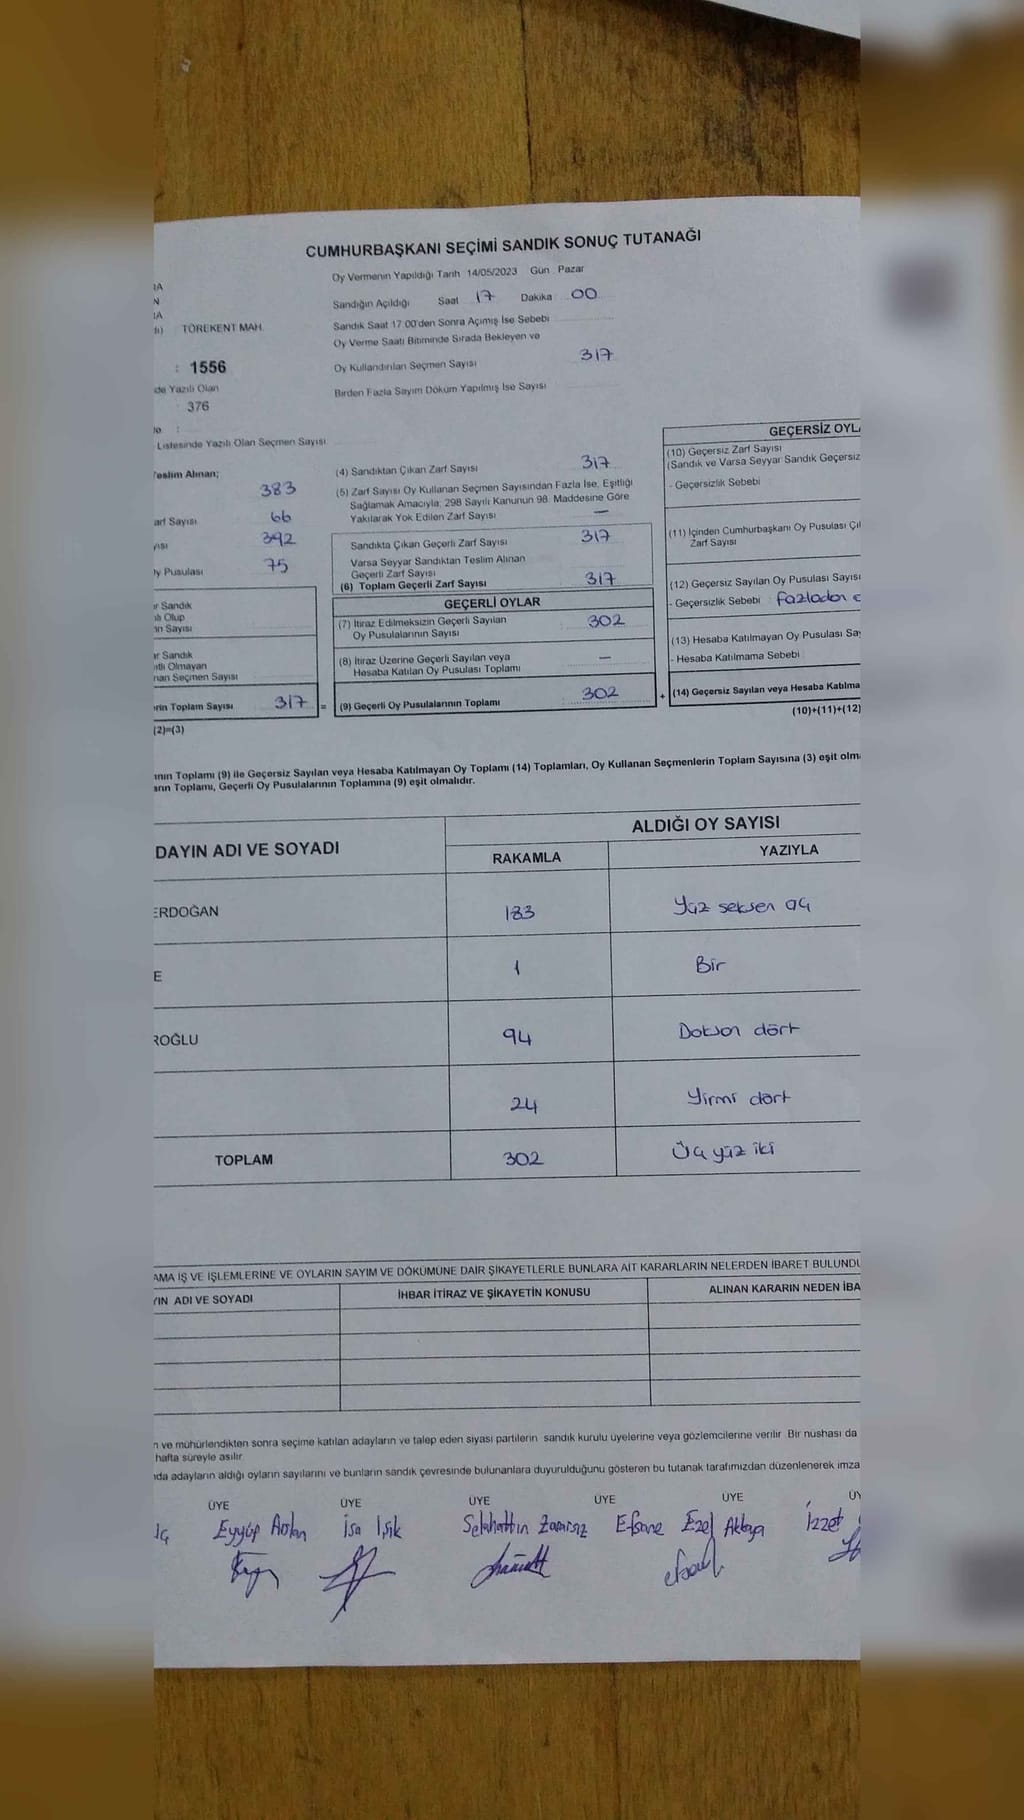 CUMHURBAŞKANI SEÇİMİ SANDIK SONUÇ TUTANAĞI
Oy Vermenin Yapıldığı Tarih 14/05/2023 Gün Pazar
Sandığın Açıldığı Saat 17 Dakika 00
TÖREKENT MAH.
Sandık Saat 17:00'den Sonra Açımış İse Sebebi
Oy Verme Saati Bitiminde Sırada Bekleyen ve
Oy Kullandırılan Seçmen Sayısı 317
: 1556
de Yazılı Olan
: 376
Birden Fazla Sayım Döküm Yapılmış İse Sayısı
Listesinde Yazılı Olan Seçmen Sayısı
Teslim Alınan;
383
arf Sayısı 66
yısı 392
y Pusulası 75
r Sandık
lı Olup
an Sayısı
r Sandık
ıtlı Olmayan
nan Seçmen Sayısı
rin Toplam Sayısı 317 =
(2)=(3)
(4) Sandıktan Çıkan Zarf Sayısı 317
(5) Zarf Sayısı Oy Kullanan Seçmen Sayısından Fazla İse, Eşitliği
Sağlamak Amacıyla, 298 Sayılı Kanunun 98. Maddesine Göre
Yakılarak Yok Edilen Zarf Sayısı —
Sandıkta Çıkan Geçerli Zarf Sayısı 317
Varsa Seyyar Sandıktan Teslim Alınan
Geçerli Zarf Sayısı
(6) Toplam Geçerli Zarf Sayısı 317
GEÇERLİ OYLAR
(7) İtiraz Edilmeksizin Geçerli Sayılan
Oy Pusulalarının Sayısı 302
(8) İtiraz Üzerine Geçerli Sayılan veya
Hesaba Katılan Oy Pusulası Toplamı —
(9) Geçerli Oy Pusulalarının Toplamı 302 +
GEÇERSİZ OYLA
(10) Geçersiz Zarf Sayısı
(Sandık ve Varsa Seyyar Sandık Geçersiz
- Geçersizlik Sebebi
(11) İçinden Cumhurbaşkanı Oy Pusulası Çı
Zarf Sayısı
(12) Geçersiz Sayılan Oy Pusulası Sayısı
- Geçersizlik Sebebi Fazladan
(13) Hesaba Katılmayan Oy Pusulası Say
- Hesaba Katılmama Sebebi
(14) Geçersiz Sayılan veya Hesaba Katılma
(10)+(11)+(12)
nın Toplamı (9) ile Geçersiz Sayılan veya Hesaba Katılmayan Oy Toplamı (14) Toplamları, Oy Kullanan Seçmenlerin Toplam Sayısına (3) eşit olm
arın Toplamı, Geçerli Oy Pusulalarının Toplamına (9) eşit olmalıdır.
DAYIN ADI VE SOYADI ALDIĞI OY SAYISI
RAKAMLA YAZIYLA
ERDOĞAN 183 Yüz seksen üç
E 1 Bir
ROĞLU 94 Doksan dört
24 Yirmi dört
TOPLAM 302 Üç yüz iki
AMA İŞ VE İŞLEMLERİNE VE OYLARIN SAYIM VE DÖKÜMÜNE DAİR ŞİKAYETLERLE BUNLARA AİT KARARLARIN NELERDEN İBARET BULUNDU
YIN ADI VE SOYADI İHBAR İTİRAZ VE ŞİKAYETİN KONUSU ALINAN KARARIN NEDEN İBA
n ve mühürlendikten sonra seçime katılan adayların ve talep eden siyasi partilerin sandık kurulu üyelerine veya gözlemcilerine verilir. Bir nüshası da
hafta süreyle asılır.
nda adayların aldığı oyların sayılarını ve bunların sandık çevresinde bulunanlara duyurulduğunu gösteren bu tutanak tarafımızdan düzenlenerek imza
ÜYE ÜYE ÜYE ÜYE ÜYE ÜY
Eyyüp Aslan İsa Işık Selahattin Zararsız Efsane Ezel Akkaya İzzet